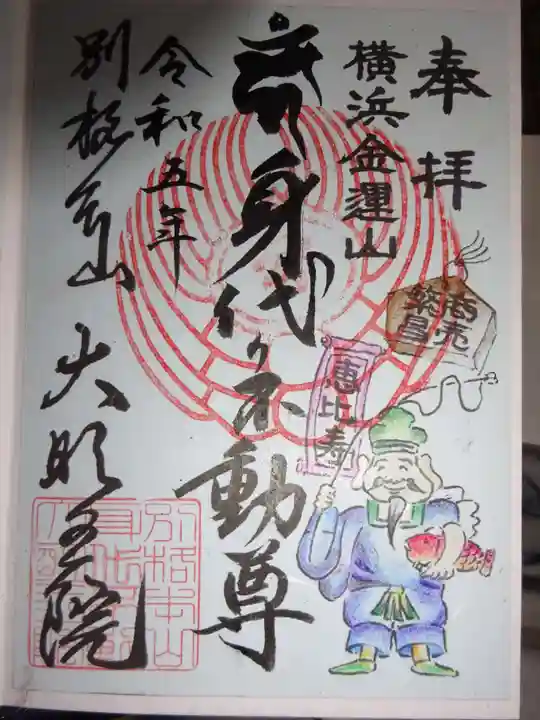 奉拝
横浜金運山
身代り不動尊
令和五年
別格本山 大明王院
商売
繁昌
恵比寿
別格本山